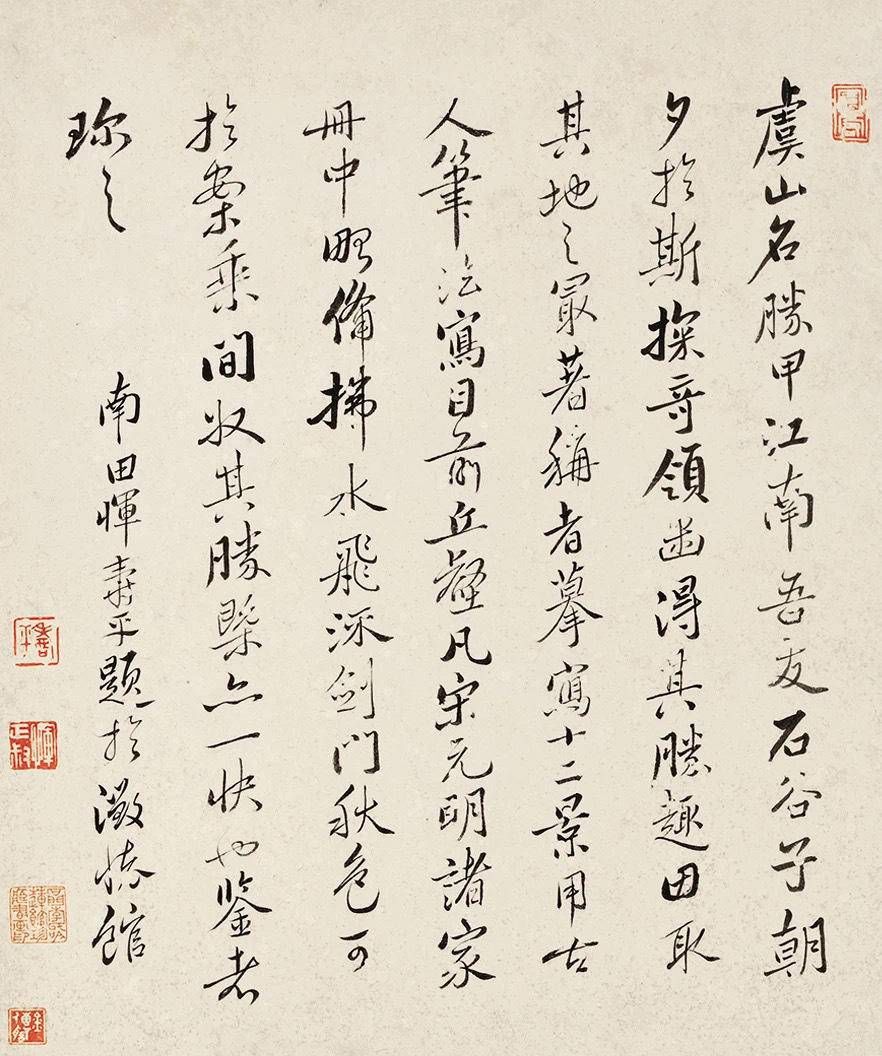 虞山名勝甲江南吾友石谷子朝
夕於斯探奇領幽得其勝趣因取
其地之最著稱者摹寫十二景用古
人筆法寫目前丘壑凡宋元明諸家
冊中略備拂水飛流劍門秋色可
於案乘間收其勝槩亦一快也鑒者
珍之
南田惲壽平題於澂懷館
壽平
惲正叔